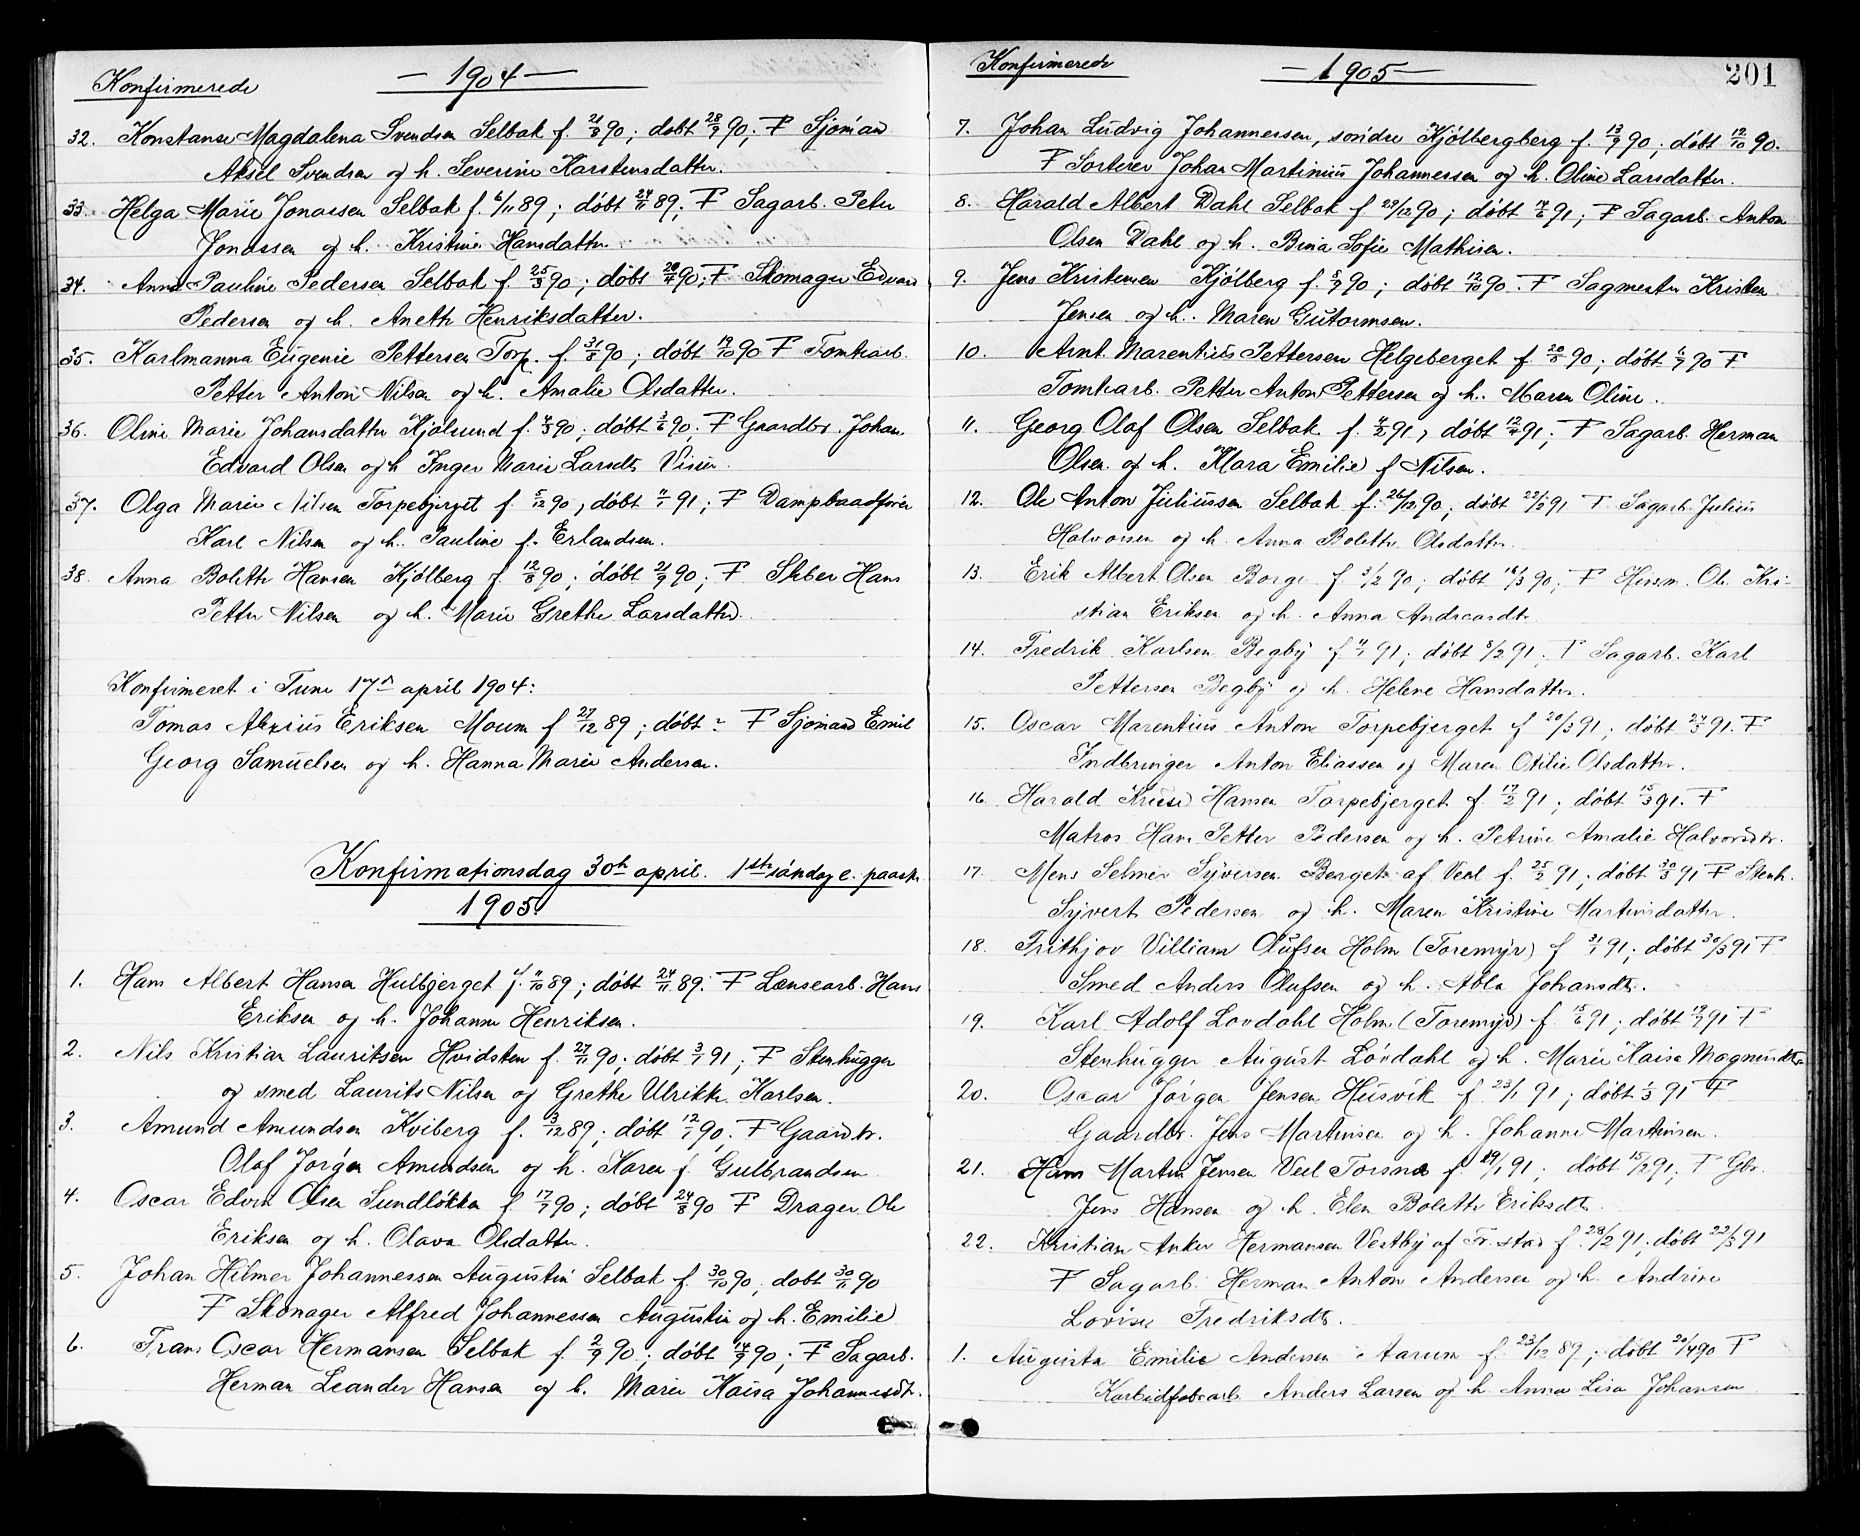 Konfirmerede — 1904 —
32. Konstanse Magdalena Svendsen Selbak f. 21/8 90; døbt 28/9 90; F Sjømand
Aksel Svendsen og h. Severine Karstensdatter.
33. Helga Marie Jonassen Selbak f. 6/11 89; døbt 24/11 89; F Sagarb. Peter
Jonassen og h. Kristine Hansdatter
34. Anna Pauline Pedersen Selbak f. 25/3 90; døbt 20/4 90; F Skomager Edvard
Pedersen og h. Anethe Henriksdatter.
35. Karlmanna Eugenie Pettersen Torp. f. 31/8 90; døbt 19/10 90 F Tomtearb.
Petter Anton Nilsen og h. Amalie Olsdatter.
36. Oline Marie Johansdatter Kjølsund f. 4/3 90; døbt 3/6 90; F Gaardbr. Johan
Edvard Olsen og h Inger Marie Larsdtr
37. Olga Marie Nilsen Torpebjerget f. 5/12 90, døbt 11/1 91; F Dampbaadfører
Karl Nilsen og h. Pauline f. Erlandsen.
38. Anna Bolette Hansen Kjølberg f. 12/8 90; døbt 21/9 90; F Hans
Petter Nilsen og h. Marie Grethe Larsdatter.
Konfirmeret i Tune 17de april 1904:
Tomas Eriksen Moum f 27/12 89; døbt ? F Sjømand Emil
Georg Samuelsen og h. Hanna Marie Andersen.
Konfirmationsdag 30te april. 1ste søndag e. paaske
1905.
1. Hans Albert Hansen Hulbjerget f. 11/10 89; døbt 24/11 89. F Lænsearb. Hans
Eriksen og h. Johanne Henriksen.
2. Nils Kristian Lauritsen Hvidsten f. 27/11 90; døbt 3/1 91; F Stenhugger
og smed Laurits Nilsen og Grethe Ulrikke Karlsen.
3. Amund Amundsen Kviberg f. 3/12 89; døbt 12/1 90. F Gaardbr.
Olaf Jørgen Amundsen og h. Karen f. Gulbrandsen
4. Oscar Edvin Olsen Sundløkka f 17/7 90; døbt 24/8 90 F Drager Ole
Eriksen og h. Olava Olsdatter.
5. Johan Hilmer Johannessen Augustin Selbak f. 30/10 90; døbt 30/11 90
F Skomager Alfred Johannessen Augustin og h. Emilie
6. Frans Oscar Hermansen Selbak f. 2/7 90; døbt 14/9 90; F Sagarb.
Herman Leander Hansen og h. Marie Kaisa Johannesdtr.
Konfirmerede — 1905 — 201
7. Johan Ludvig Johannessen, søndre Kjølbergberg f. 13/9 90; døbt 12/10 90.
F Sorterer Johan Martinius Johannessen og h. Oline Larsdatter.
8. Harald Albert Dahl Selbak f 29/12 90; døbt 14/6 91; F Sagarb. Anton
Olsen Dahl og h. Bina Sofie Mathisen.
9. Jens Kristensen Kjølberg f. 5/9 90; døbt 12/10 90. F Sagmester Kristen
Jensen og h. Maren Gutormsen.
10. Arnt Marentius Pettersen Helgeberget f. 20/5 90; døbt 6/7 90 F
Tomtearb. Petter Anton Pettersen og h. Maren Oline.
11. Georg Olaf Olsen Selbak f. 4/2 91, døbt 12/4 91; F Sagarb. Herman
Olsen og h. Klara Emilie f Nilsen.
12. Ole Anton Juliussen Selbak f. 26/12 90; døbt 22/2 91 F Sagarb. Julius
Halvorsen og h. Anna Bolette Olsdatter.
13. Erik Albert Olsen Borge f 3/2 90; døbt 16/3 90; F Husm. Ole Kri-
stian Eriksen og h. Anna Andreasdtr
14. Fredrik Karlsen Begby f 4/1 91; døbt 8/2 91; F Sagarb. Karl
Pettersen Begby og h. Helene Hansdatter.
15. Oscar Marentius Anton Torpebjerget f 20/3 91; døbt 24/5 91. F
Indbringer Anton Eliassen og Maren Otilie Olsdatter.
16. Harald Hansen Torpebjerget f. 17/2 91; døbt 15/3 91. F
Matros Hans Petter Pedersen og h. Petrine Amalie Halvorsdtr.
17. Mens Selmer Syversen Berget af Veel f. 25/2 91; døbt 30/3 91 F Stenh.
Syvert Pedersen og h. Maren Kristine Martinsdatter.
18. Frithjov Villiam Olufsen Holm (Toremyr) f 31/1 91; døbt 30/3 91 F
Smed Anders Olufsen og h. Abla Johansdtr.
19. Karl Adolf Lovdahl Holm (Toremyr) f. 15/6 91; døbt 19/7 91 F
Stenhugger August Lövdahl og h. Marie Kaisa Magnusdtr
20. Oscar Jørgen Jensen Husvik f 23/1 91; døbt 1/3 91 F
Gaardbr. Jens Martinsen og h. Johanne Martinsen.
21. Hans Martin Jensen Veel Torsnæs f 19/1 91; døbt 15/2 91; F Gbr.
Jens Hansen og h. Elen Bolette Eriksdtr.
22. Kristian Anker Hermansen Vestby af Fr.stad f. 28/2 91; døbt 22/3 91
F Sagarb. Herman Anton Andersen og h. Andrine
Lovise Fredriksdtr.
1. Augusta Emilie Andersen Aarum f. 23/12 89; døbt 20/4 90 F
Karbidfabarb. Anders Larsen og h. Anna Lisa Johansen